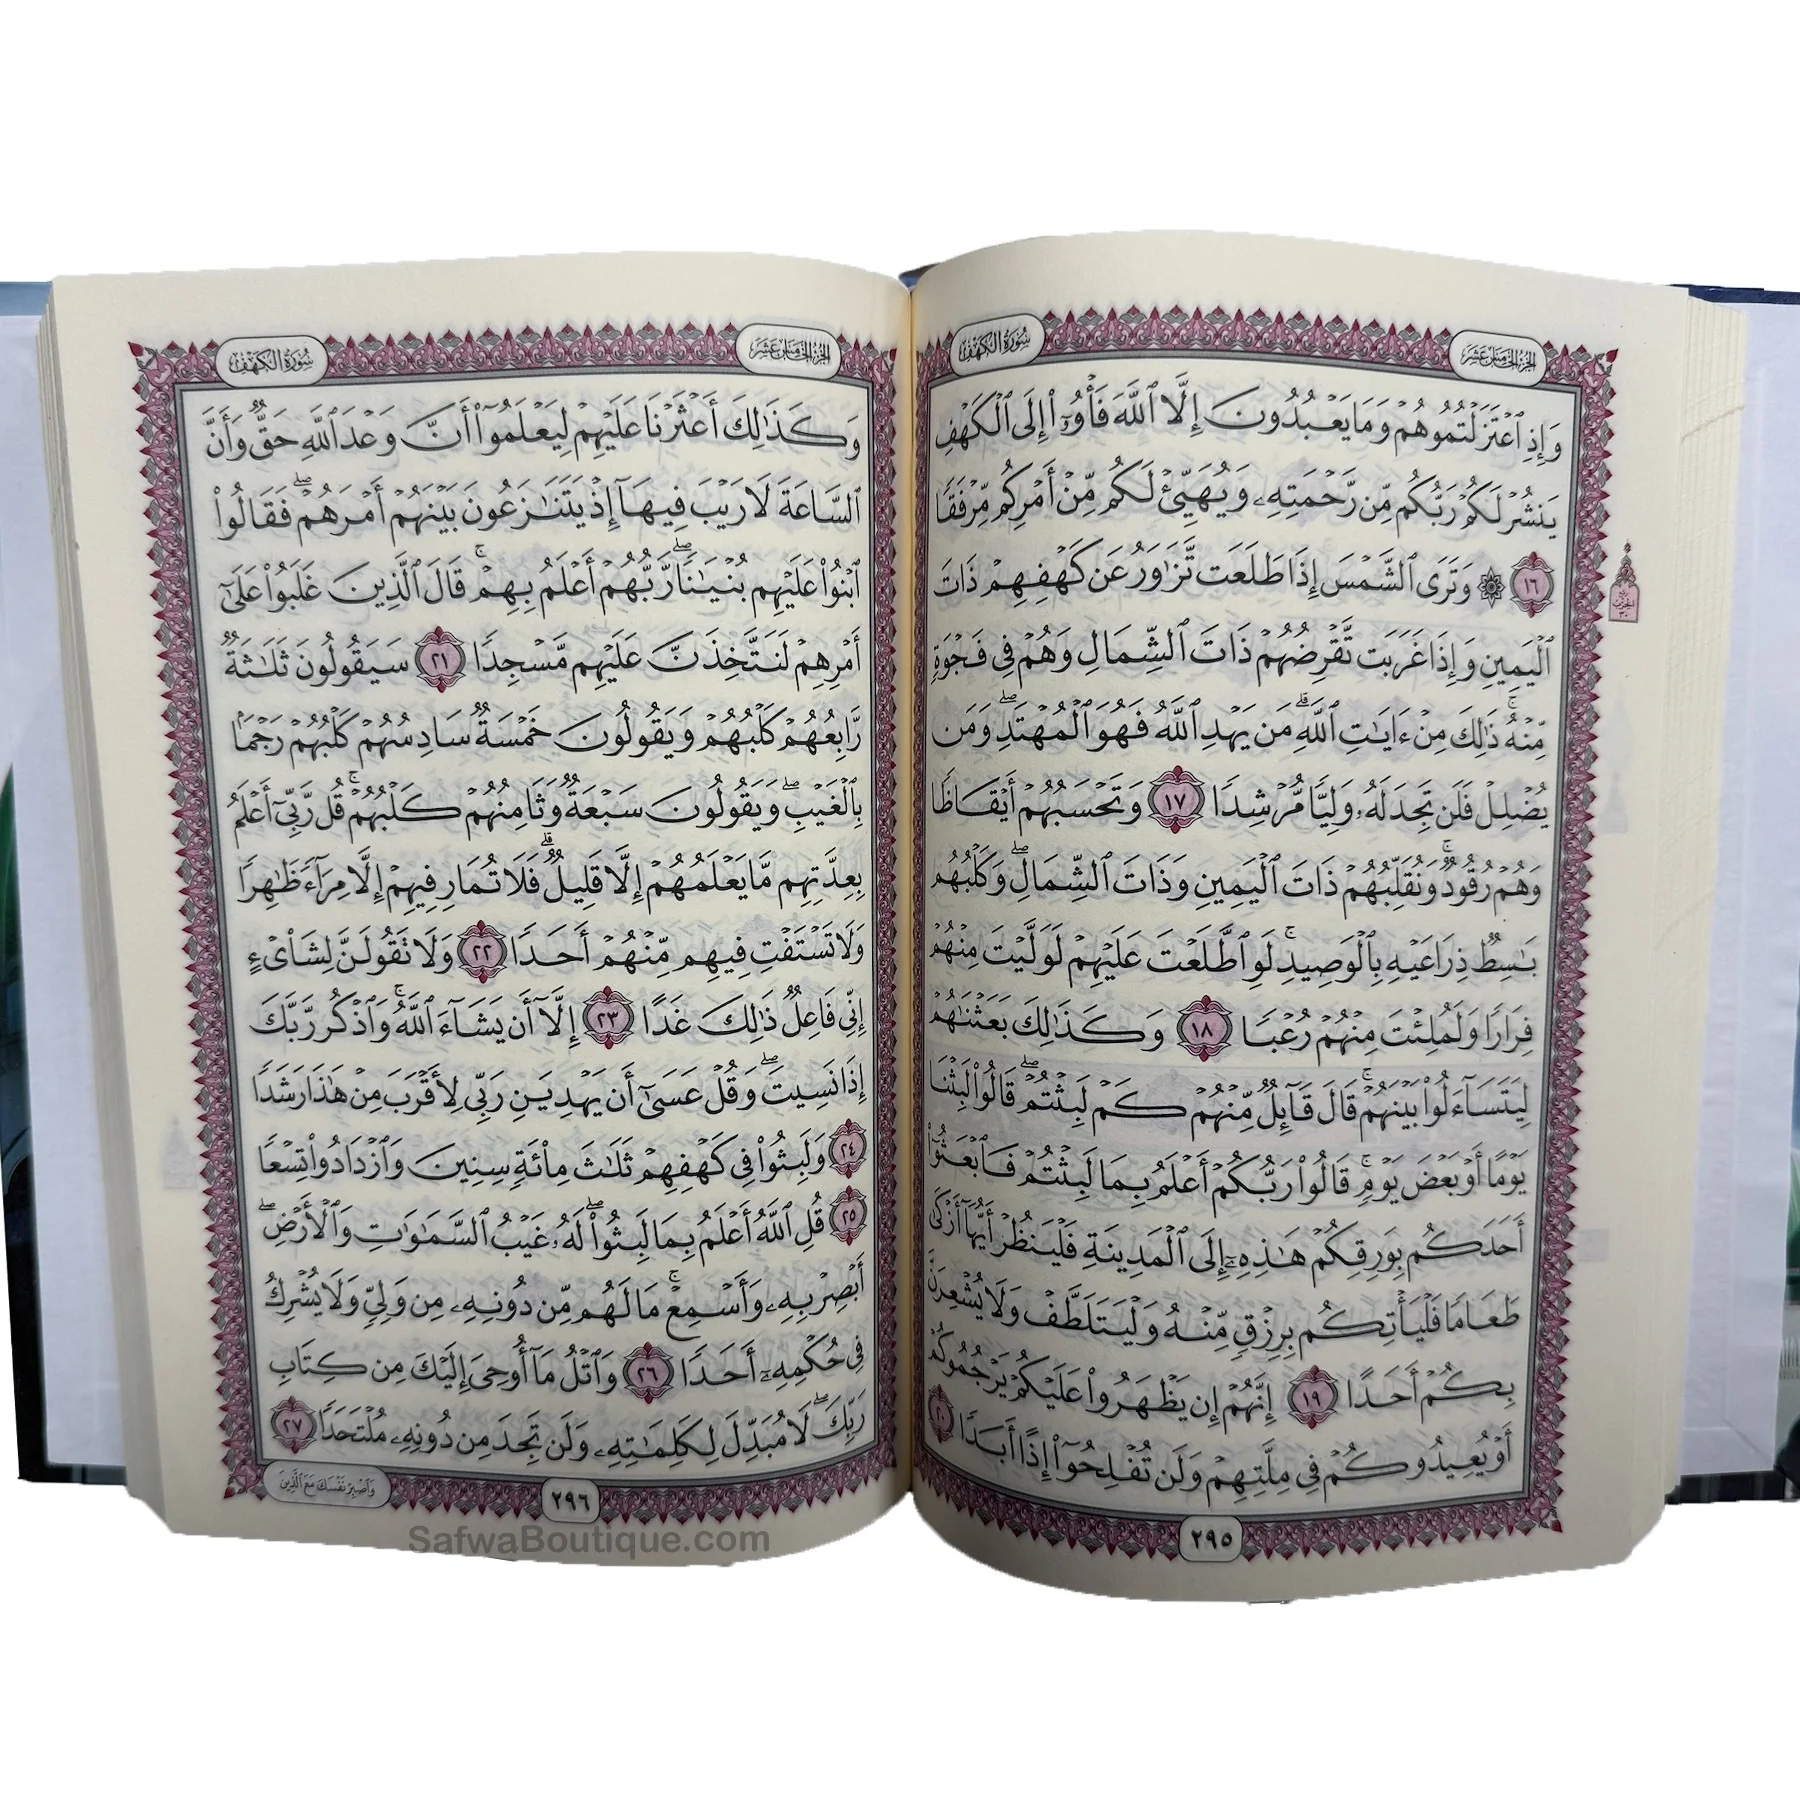 الجزء الخامس عشر
سورة الكهف
وَإِذِ ٱعۡتَزَلۡتُمُوهُمۡ وَمَا يَعۡبُدُونَ إِلَّا ٱللَّهَ فَأۡوُۥٓاْ إِلَى ٱلۡكَهۡفِ
يَنشُرۡ لَكُمۡ رَبُّكُم مِّن رَّحۡمَتِهِۦ وَيُهَيِّئۡ لَكُم مِّنۡ أَمۡرِكُم مِّرۡفَقٗا
١٦ ۞ وَتَرَى ٱلشَّمۡسَ إِذَا طَلَعَت تَّزَٰوَرُ عَن كَهۡفِهِمۡ ذَاتَ
ربع الحزب ٣٠
ٱلۡيَمِينِ وَإِذَا غَرَبَت تَّقۡرِضُهُمۡ ذَاتَ ٱلشِّمَالِ وَهُمۡ فِي فَجۡوَةٖ
مِّنۡهُۚ ذَٰلِكَ مِنۡ ءَايَٰتِ ٱللَّهِۗ مَن يَهۡدِ ٱللَّهُ فَهُوَ ٱلۡمُهۡتَدِۖ وَمَن
يُضۡلِلۡ فَلَن تَجِدَ لَهُۥ وَلِيّٗا مُّرۡشِدٗا ١٧ وَتَحۡسَبُهُمۡ أَيۡقَاظٗا
وَهُمۡ رُقُودٞۚ وَنُقَلِّبُهُمۡ ذَاتَ ٱلۡيَمِينِ وَذَاتَ ٱلشِّمَالِۖ وَكَلۡبُهُم
بَٰسِطٞ ذِرَاعَيۡهِ بِٱلۡوَصِيدِۚ لَوِ ٱطَّلَعۡتَ عَلَيۡهِمۡ لَوَلَّيۡتَ مِنۡهُمۡ
فِرَارٗا وَلَمُلِئۡتَ مِنۡهُمۡ رُعۡبٗا ١٨ وَكَذَٰلِكَ بَعَثۡنَٰهُمۡ
لِيَتَسَآءَلُواْ بَيۡنَهُمۡۚ قَالَ قَآئِلٞ مِّنۡهُمۡ كَمۡ لَبِثۡتُمۡۖ قَالُواْ لَبِثۡنَا
يَوۡمًا أَوۡ بَعۡضَ يَوۡمٖۚ قَالُواْ رَبُّكُمۡ أَعۡلَمُ بِمَا لَبِثۡتُمۡ فَٱبۡعَثُوٓاْ
أَحَدَكُم بِوَرِقِكُمۡ هَٰذِهِۦٓ إِلَى ٱلۡمَدِينَةِ فَلۡيَنظُرۡ أَيُّهَآ أَزۡكَىٰ
طَعَامٗا فَلۡيَأۡتِكُم بِرِزۡقٖ مِّنۡهُ وَلۡيَتَلَطَّفۡ وَلَا يُشۡعِرَنَّ
بِكُمۡ أَحَدًا ١٩ إِنَّهُمۡ إِن يَظۡهَرُواْ عَلَيۡكُمۡ يَرۡجُمُوكُمۡ
أَوۡ يُعِيدُوكُمۡ فِي مِلَّتِهِمۡ وَلَن تُفۡلِحُوٓاْ إِذًا أَبَدٗا ٢٠
٢٩٥
الجزء الخامس عشر
سورة الكهف
وَكَذَٰلِكَ أَعۡثَرۡنَا عَلَيۡهِمۡ لِيَعۡلَمُوٓاْ أَنَّ وَعۡدَ ٱللَّهِ حَقّٞ وَأَنَّ
ٱلسَّاعَةَ لَا رَيۡبَ فِيهَآ إِذۡ يَتَنَٰزَعُونَ بَيۡنَهُمۡ أَمۡرَهُمۡۖ فَقَالُواْ
ٱبۡنُواْ عَلَيۡهِم بُنۡيَٰنٗاۖ رَّبُّهُمۡ أَعۡلَمُ بِهِمۡۚ قَالَ ٱلَّذِينَ غَلَبُواْ عَلَىٰٓ
أَمۡرِهِمۡ لَنَتَّخِذَنَّ عَلَيۡهِم مَّسۡجِدٗا ٢١ سَيَقُولُونَ ثَلَٰثَةٞ
رَّابِعُهُمۡ كَلۡبُهُمۡ وَيَقُولُونَ خَمۡسَةٞ سَادِسُهُمۡ كَلۡبُهُمۡ رَجۡمَۢا
بِٱلۡغَيۡبِۖ وَيَقُولُونَ سَبۡعَةٞ وَثَامِنُهُمۡ كَلۡبُهُمۡۚ قُل رَّبِّيٓ أَعۡلَمُ
بِعِدَّتِهِم مَّا يَعۡلَمُهُمۡ إِلَّا قَلِيلٞۗ فَلَا تُمَارِ فِيهِمۡ إِلَّا مِرَآءٗ ظَٰهِرٗا
وَلَا تَسۡتَفۡتِ فِيهِم مِّنۡهُمۡ أَحَدٗا ٢٢ وَلَا تَقُولَنَّ لِشَاْيۡءٍ
إِنِّي فَاعِلٞ ذَٰلِكَ غَدًا ٢٣ إِلَّآ أَن يَشَآءَ ٱللَّهُۚ وَٱذۡكُر رَّبَّكَ
إِذَا نَسِيتَۖ وَقُلۡ عَسَىٰٓ أَن يَهۡدِيَنِ رَبِّي لِأَقۡرَبَ مِنۡ هَٰذَا رَشَدٗا
٢٤ وَلَبِثُواْ فِي كَهۡفِهِمۡ ثَلَٰثَ مِاْئَةٖ سِنِينَ وَٱزۡدَادُواْ تِسۡعٗا
٢٥ قُلِ ٱللَّهُ أَعۡلَمُ بِمَا لَبِثُواْۖ لَهُۥ غَيۡبُ ٱلسَّمَٰوَٰتِ وَٱلۡأَرۡضِۖ
أَبۡصِرۡ بِهِۦ وَأَسۡمِعۡۚ مَا لَهُم مِّن دُونِهِۦ مِن وَلِيّٖ وَلَا يُشۡرِكُ
فِي حُكۡمِهِۦٓ أَحَدٗا ٢٦ وَٱتۡلُ مَآ أُوحِيَ إِلَيۡكَ مِن كِتَابِ
رَبِّكَۖ لَا مُبَدِّلَ لِكَلِمَٰتِهِۦ وَلَن تَجِدَ مِن دُونِهِۦ مُلۡتَحَدٗا ٢٧
وَٱصۡبِرۡ نَفۡسَكَ مَعَ ٱلَّذِينَ
٢٩٦
SafwaBoutique.com